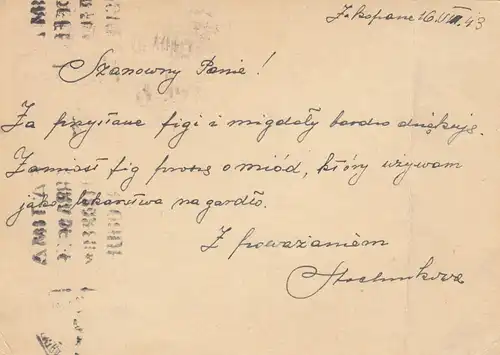 Zakopane 16.VII.43
Szanowny Panie!
Za przysłane figi i migdały bardzo dziękuję.
Zamiast fig proszę o miód, który używam
jako lekarstwa na gardło.
Z poważaniem